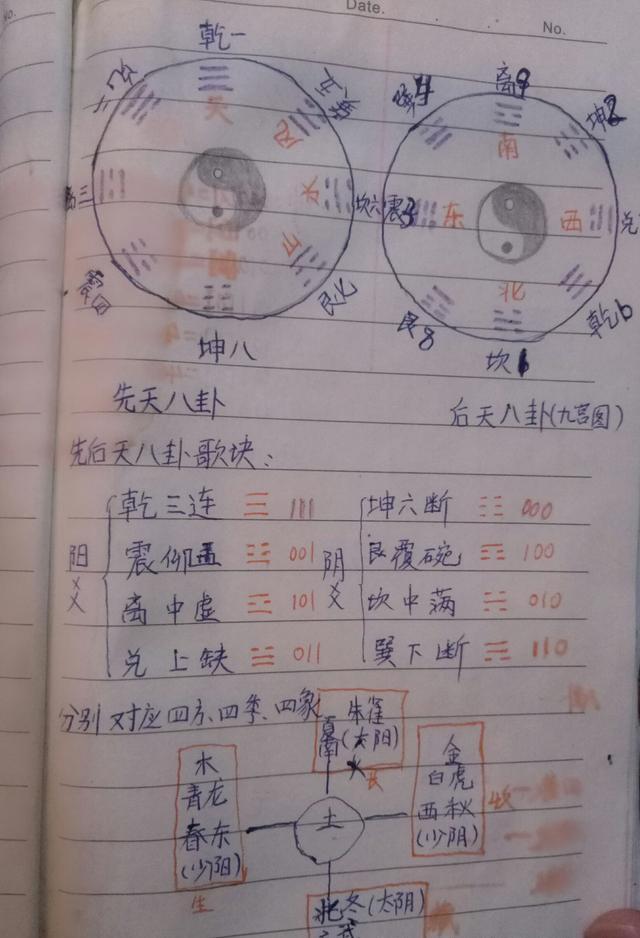 Date.
No.
乾一
天
水
山
坎六
艮七
坤八
震四
先天八卦
离9
坤2
兑
乾6
坎1
艮8
震3
南
东
西
北
后天八卦(九宫图)
先后天八卦歌块:
阳爻
乾三连 ☰ 111
震仰盂 ☳ 001
离中虚 ☲ 101
兑上缺 ☱ 011
阴爻
坤六断 ☷ 000
艮覆碗 ☶ 100
坎中满 ☵ 010
巽下断 ☴ 110
分别对应四方、四季、四象
夏南
朱雀
(太阳)
火
长
木
青龙
春东
(少阳)
生
土
金
白虎
西秋
(少阴)
收
北冬(太阴)